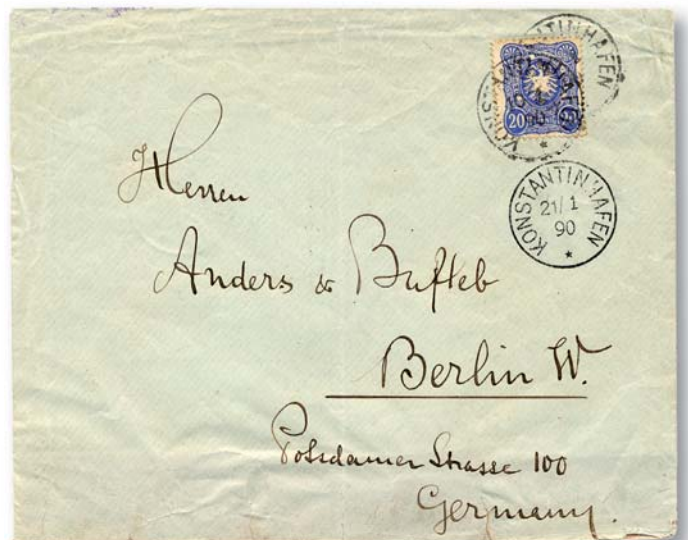 KONSTANTINHAFEN
20 20
KONSTANTINHAFEN
KONSTANTINHAFEN
21/1
90
Herren
Anders & Bufleb
Berlin W.
Potsdamer Strasse 100
Germany.